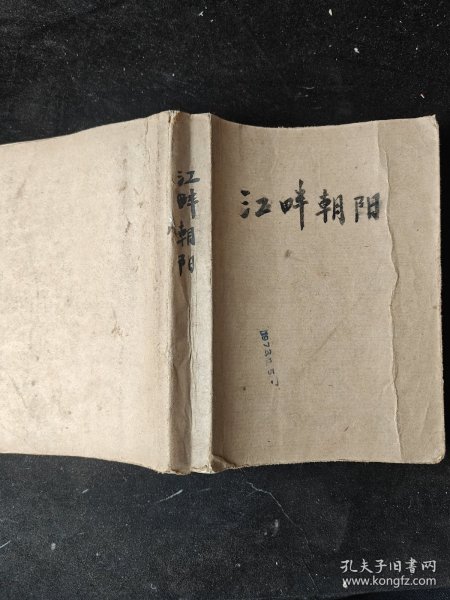 江畔朝阳
江畔朝阳
孔夫子旧书网
www.kongfz.com